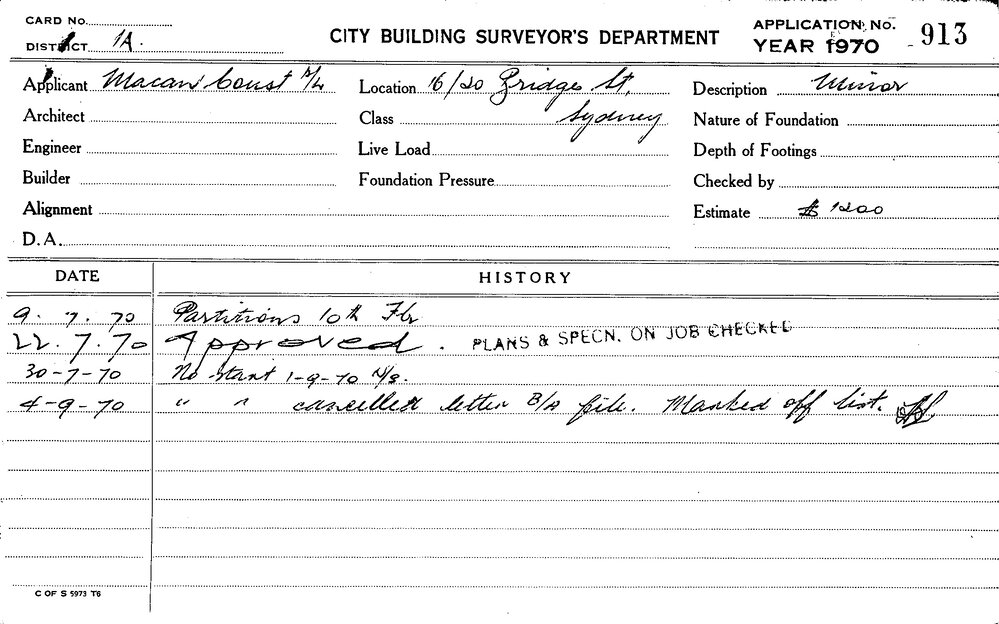 CARD No.
DISTRICT 1A.
CITY BUILDING SURVEYOR'S DEPARTMENT
APPLICATION No.
YEAR 1970 - 913
Applicant Macan Const P/L Location 16/20 Bridge St. Description Minor
Architect Class Sydney Nature of Foundation
Engineer Live Load Depth of Footings
Builder Foundation Pressure Checked by
Alignment Estimate $ 1200
D.A.
DATE HISTORY
9. 7. 70 Partitions 10th Flr
22. 7. 70 Approved. PLANS & SPECN. ON JOB CHECKED
30-7-70 No start 1-9-70 N/S.
4-9-70 " " cancelled letter B/A file. Marked off list.
C OF S 5973 T6